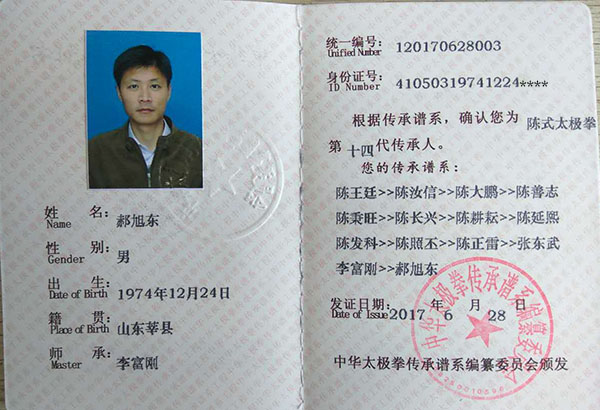 姓 名: 郝旭东
Name
性 别: 男
Gender
出 生: 1974年12月24日
Date of Birth
籍 贯: 山东莘县
Place of Birth
师 承: 李富刚
Master
统一编号: 120170628003
Unified Number
身份证号: 41050319741224****
ID Number
根据传承谱系，确认您为 陈式太极拳
第 十四 代传承人。
您的传承谱系:
陈王廷>>陈汝信>>陈大鹏>>陈善志
陈秉旺>>陈长兴>>陈耕耘>>陈延熙
陈发科>>陈照丕>>陈正雷>>张东武
李富刚>>郝旭东
发证日期: 2017 年 6 月 28 日
Date of Issue
中华太极拳传承谱系编纂委员会
中华太极拳传承谱系编纂委员会颁发